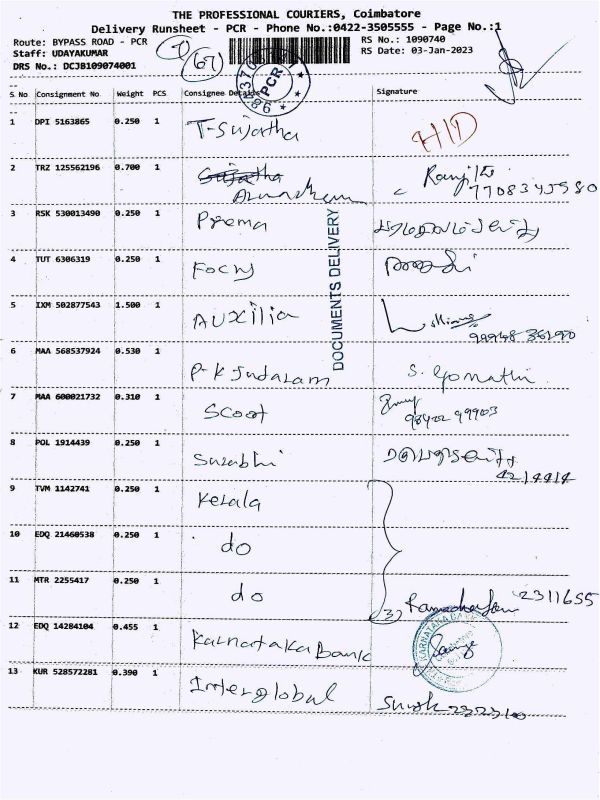 THE PROFESSIONAL COURIERS, Coimbatore
Delivery Runsheet - PCR - Phone No.:0422-3505555 - Page No.:1
Route: BYPASS ROAD - PCR
RS No.: 1090740
Staff: UDAYAKUMAR
RS Date: 03-Jan-2023
DRS No.: DCJB109074001
PCR
S No Consignment No Weight PCS Consignee Details Signature
1 DPI 5163865 0.250 1 T-Sujatha HID
2 TRZ 125562196 0.700 1 Ranjith
7708345580
3 RSK 530013490 0.250 1 Prema
4 TUT 6306319 0.250 1
5 IXM 502877543 1.500 1 AUXilia
6 MAA 568537924 0.530 1 P-K Sudaram S. Gomathi
7 MAA 600021732 0.310 1 Scoot
98422 99903
8 POL 1914439 0.250 1 Surabhi
9 TVM 1142741 0.250 1 Kerala
10 EDQ 21460538 0.250 1 do
11 MTR 2255417 0.250 1 do 3) 2311655
12 EDQ 14284104 0.455 1 Karnataka Bank
13 KUR 528572281 0.390 1 Interglobal
DOCUMENTS DELIVERY